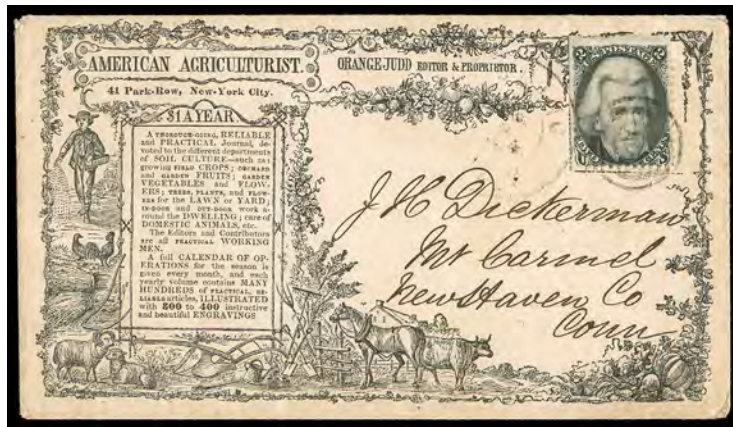 AMERICAN AGRICULTURIST.
ORANGE JUDD EDITOR & PROPRIETOR.
41 Park-Row, New-York City.
$1 A YEAR
A THOROUGH-GOING, RELIABLE
and PRACTICAL Journal, de-
voted to the different departments
of SOIL CULTURE—such as:
GROWING FIELD CROPS; ORCHARD
and GARDEN FRUITS; GARDEN
VEGETABLES and FLOW-
ERS; TREES, PLANTS, and FLOW-
ERS for the LAWN or YARD;
IN-DOOR and OUT-DOOR work a-
round the DWELLING; care of
DOMESTIC ANIMALS, etc.
The Editors and Contributors
are all PRACTICAL WORKING
MEN.
A full CALENDAR OF OP-
ERATIONS for the season is
given every month, and each
yearly volume contains MANY
HUNDREDS of PRACTICAL, RE-
LIABLE articles, ILLUSTRATED
with 300 to 400 instructive
and beautiful ENGRAVINGS
J H Dickerman
Mt Carmel
New Haven Co
Conn